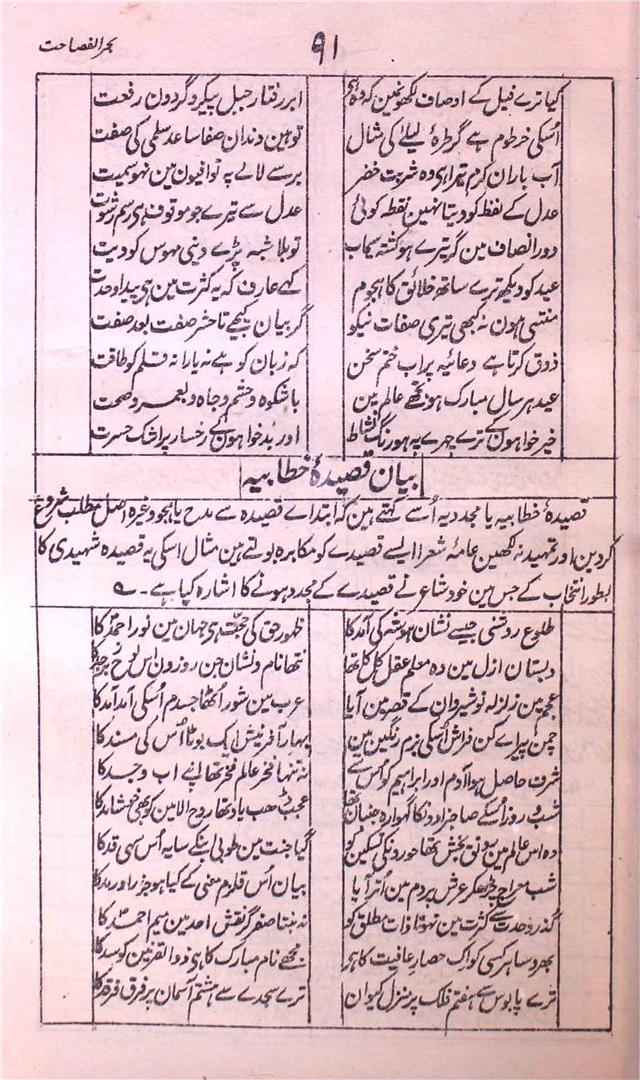 بحر الفصاحت
٩١
کیا ترے فیل کے اوصاف لکھوں مین کہ وہ ہی
ابر رفتار جبل پیکر و گردون رفعت
اُسکی خرطوم ہے گر طرۂ لیلےٰ کی مثال
تو ہین دندان صفا ساعد سلمی کی صفت
آب باران کرم تیرا ہی وہ شربت خضر
برسے لالے پہ تو افیون مین نہو سمیت
عدل کے لفظ کو دیتا نہین نقطہ کوئی
عدل سے تیرے جو موقوف ہی رسم رشوت
دور انصاف مین گر تیرے ہو کشتہ سیماب
تو بلا شبہ پڑے دینی مہوس کو دیت
عید کو دیکھ ترے ساتھ خلائق کا ہجوم
کہے عارف کہ یہ کثرت مین ہی پیدا وحدت
منتہی ہون نہ کبھی تیری صفات نیکو
گر بیان کیجے تا حشر صفت بعد صفت
ذوق کرتا ہے دعائیہ پر اب ختم سخن
کہ زبان کو ہے نہ یارا نہ قلم کو طاقت
عید ہر سال مبارک ہو تجھے عالم مین
با شکوہ و حشم و جاہ و بعمر و صحت
خیر خواہون کے ترے چہرے پہ ہو رنگ نشاط
اور بدخواہون کے رخسار پر اشک حسرت
بیان قصیدۂ خطابیہ
قصیدۂ خطابیہ یا مجددیہ اُسے کہتے ہین کہ ابتداے قصیدہ سے مدح یا ہجو وغیرہ اصل مطلب شروع
کر دین اور تمہید نہ لکھین عامۂ شعرا ایسے قصیدے کو مکابرہ بولتے ہین مثال اسکی یہ قصیدہ شہیدی کا
بطور انتخاب کے جس مین خود شاعر نے قصیدے کے مجدد ہونے کا اشارہ کیا ہے۔
طلوع روشنی جیسے نشان ہو شہ کی آمد کا
ظہور حق کی حجت ہی جہان مین نور احمد کا
دبستان ازل مین وہ معلم عقل کل کا تھا
نتھا نام و نشان جن روزون اس لوح
عجم مین زلزلہ نوشیروان کے قصر مین آیا
عرب مین شور اُٹھا جسدم اُسکی آمد آمد کا
چمن پیراے کن فراش اُسکی بزم رنگین مین
بہار آفرینش ایک بوٹا اُس کی مسند کا
شرف حاصل ہوا آدم اور ابراہیم کو اُس سے
نہ تنہا فخر عالم فخر تھا اپنے اب و جد کا
شب و روز اُسکے صاحبزادونکا گہوارہ جنبان تھا
عجب ڈھب یاد تھا روح الامین کو بھی خوشامد کا
وہ اس عالم مین رونق بخش تھا حورونکی تسکین کو
گیا جنت مین طوبی بنکے سایہ اُس سہی قد کا
شب معراج چڑھکر عرش پر دم مین اُتر آیا
بیان اُس قلزم معنی کے کیا ہو جزر اور مد کا
گذر وحدت سے کثرت مین نہوتا ذات مطلق کو
نہ بنتا صفر گر نقش احد مین میم احمد کا
بھروسا ہر کسی کو اک حصار عافیت کا ہر
مجھے نام مبارک کا ہی ذوالقرنین کو سد کا
ترے پابوس سے ہفتم فلک پر منزل کیوان
ترے سجدے سے ہشتم آسمان پر فرق فرقد کا